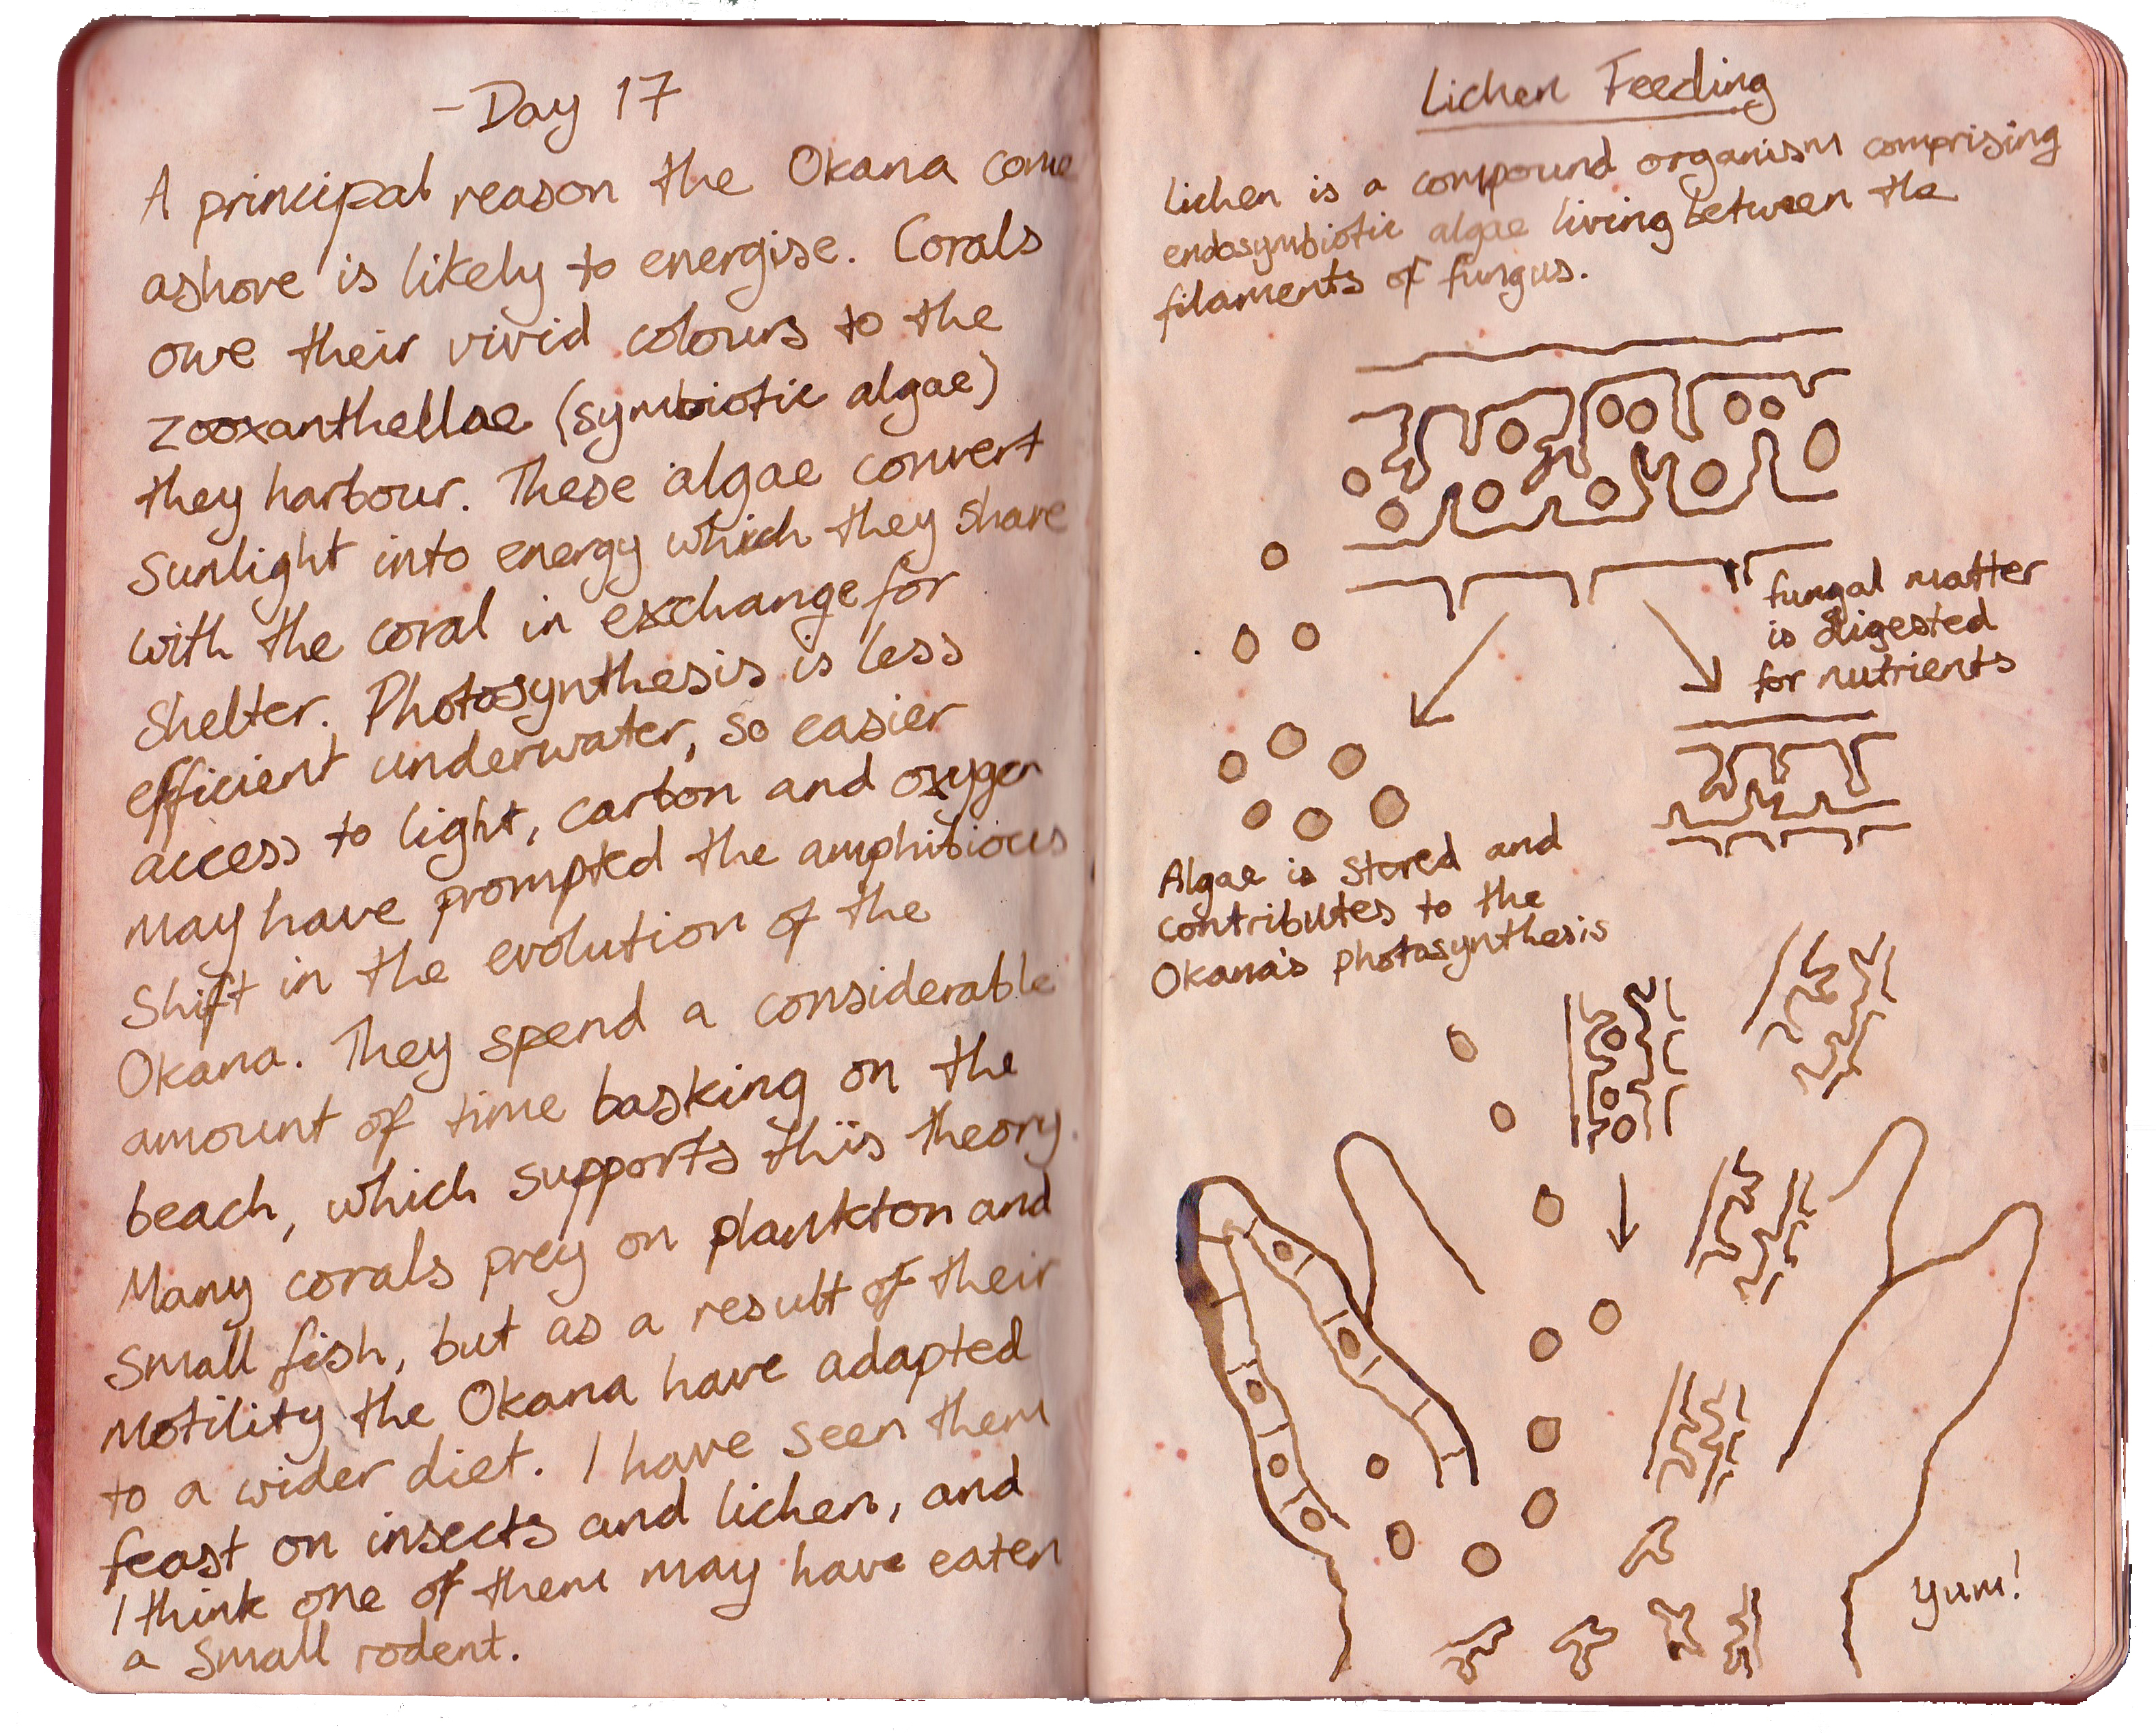 - Day 17
A principal reason the Okana come
ashore is likely to energise. Corals
owe their vivid colours to the
zooxanthellae (symbiotic algae)
they harbour. These algae convert
sunlight into energy which they share
with the coral in exchange for
shelter. Photosynthesis is less
efficient underwater, so easier
access to light, carbon and oxygen
may have prompted the amphibious
shift in the evolution of the
Okana. They spend a considerable
amount of time basking on the
beach, which supports this theory.
Many corals prey on plankton and
small fish, but as a result of their
motility the Okana have adapted
to a wider diet. I have seen them
feast on insects and lichen, and
I think one of them may have eaten
a small rodent.
Lichen Feeding
Lichen is a compound organism comprising
endosymbiotic algae living between the
filaments of fungus.
fungal matter
is digested
for nutrients
Algae is stored and
contributes to the
Okana's photosynthesis
yum!